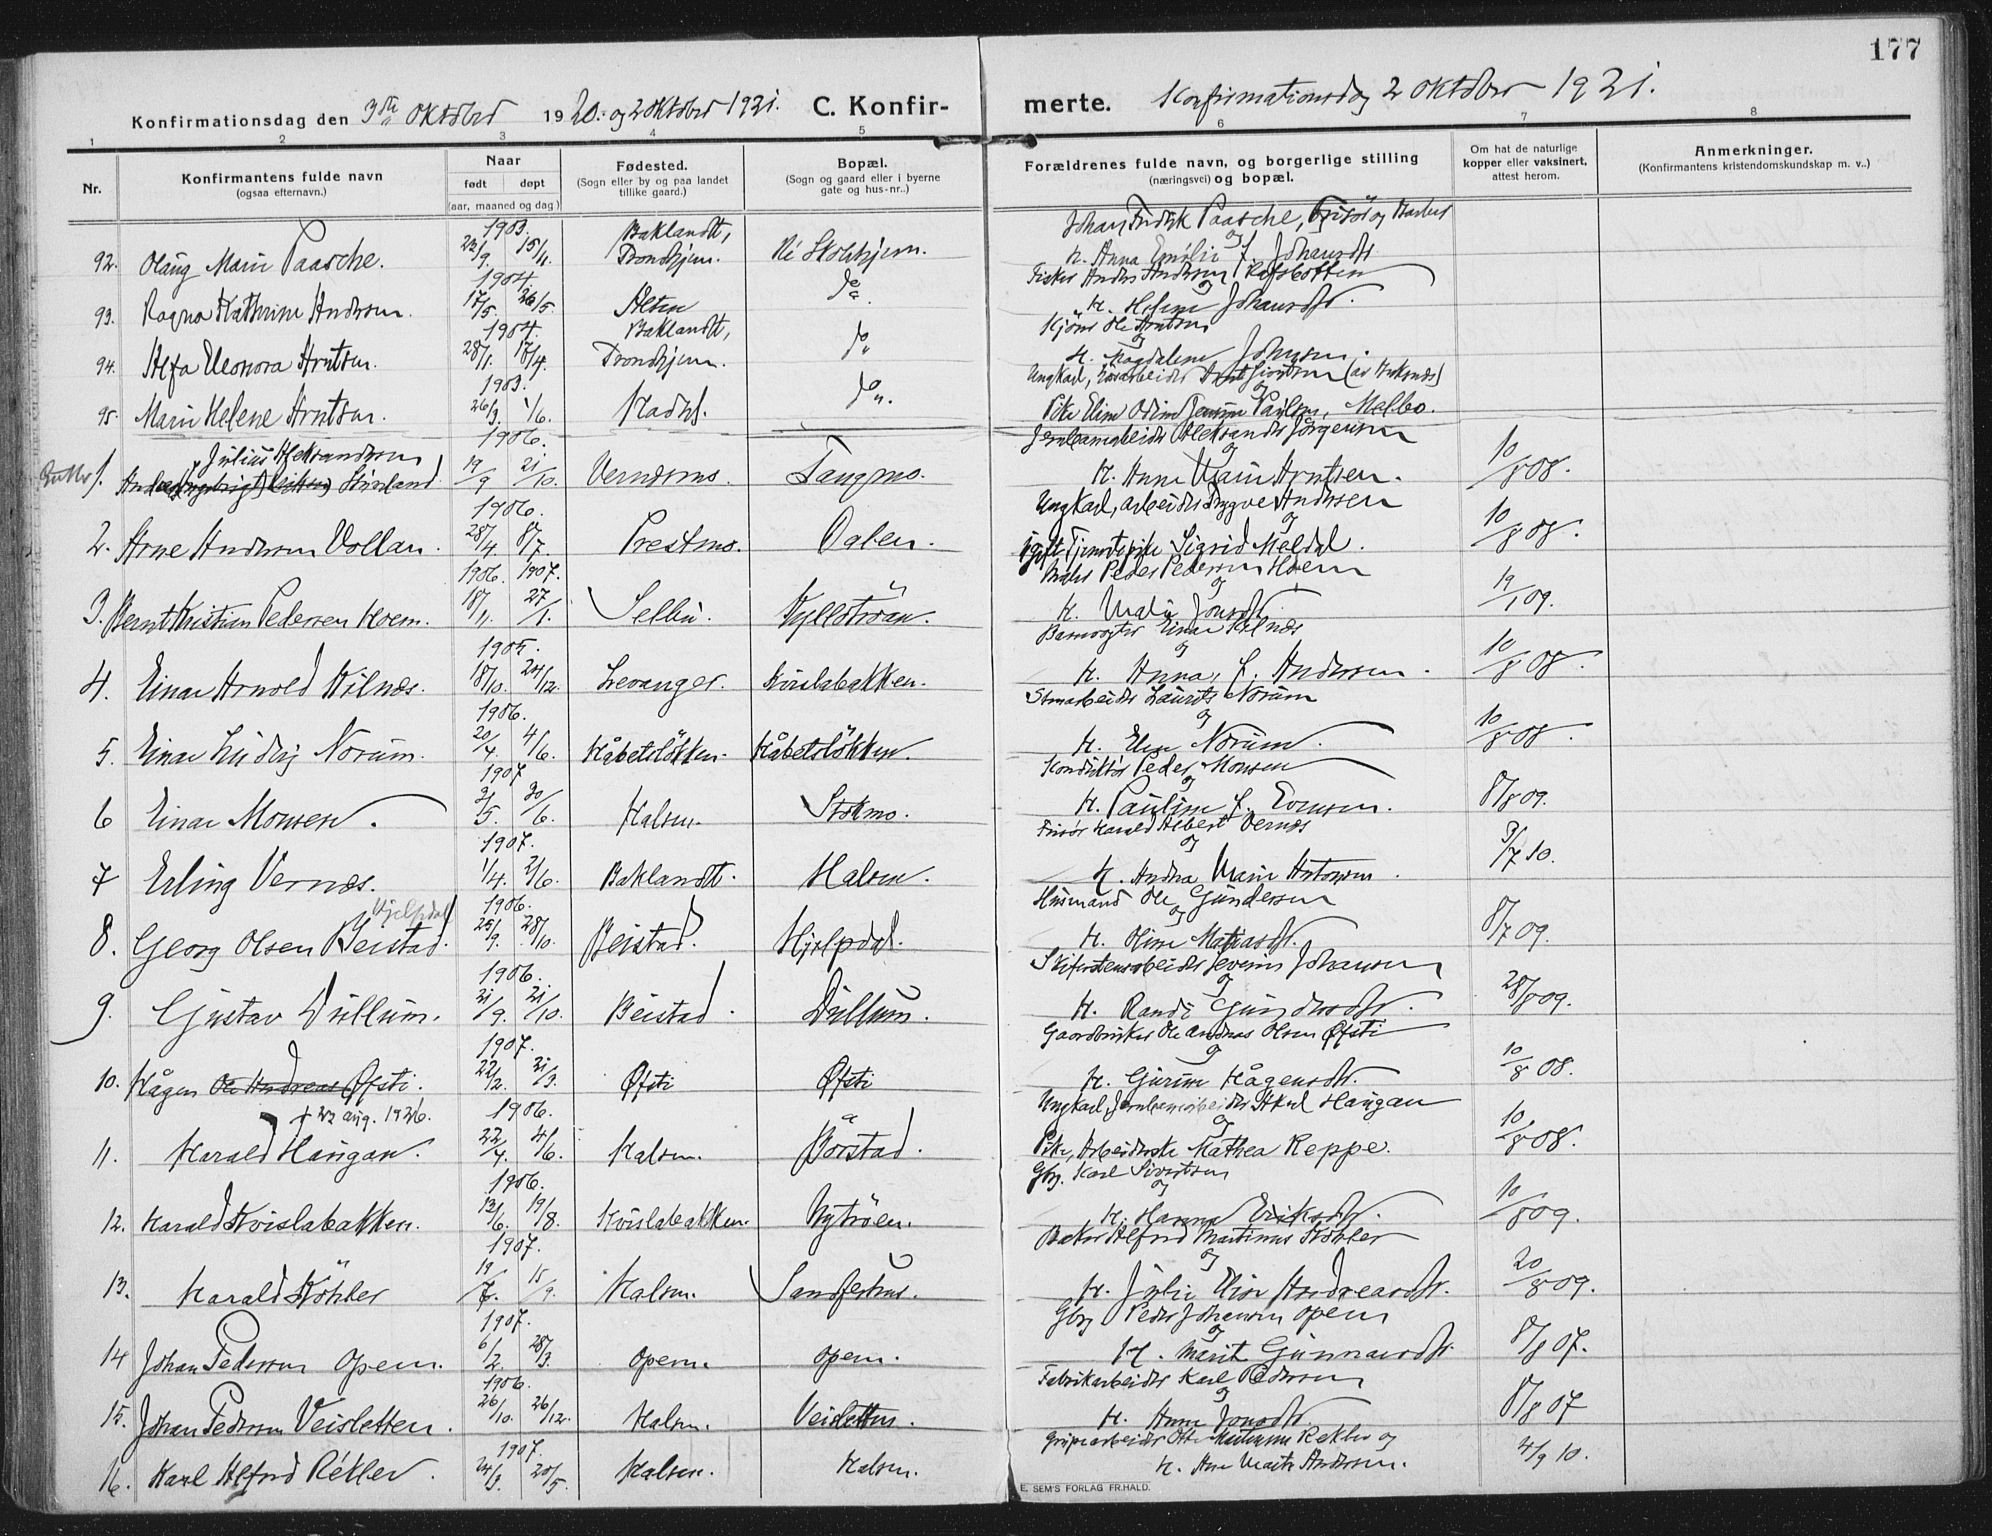 177
Konfirmationsdag den 3die Oktober 1920. og 2 Oktober 1921. C. Konfir-
merte. Konfirmationsdag 2 Oktober 1921.
1 2 3 4 5 6 7 8
Nr.
Konfirmantens fulde navn
(ogsaa efternavn.)
Naar
født døpt
(aar, maaned og dag)
Fødested.
(Sogn eller by og paa landet
tillike gaard.)
Bopæl.
(Sogn og gaard eller i byerne
gate og hus-nr..)
Forældrenes fulde navn, og borgerlige stilling
(næringsvei) og bopæl.
Om hat de naturlige
kopper eller vaksinert,
attest herom.
Anmerkninger.
(Konfirmantens kristendomskundskap m. v..)
1903. Baklandet, Johan Fredrik Paasche, Frisør og Barber
92. Olaug Marie Paasche. 23/9. 15/11. Trondhjem. Skolehjem. og H. Anna Emilie f. Johansdtr.
1904. Fisker Anders Andersen Refsbotten
93. Ragna Kathrine Andersen. 17/5. 26/5. Alten do. og H. Helene Johansdtr.
1904. Baklandet, Ole Arntsen
94. Alfa Eleonora Arntsen. 28/1. 17/4. Trondhjem. do. og H. Magdalene Johnsen.
1903. Ungkarl,
95. Marie Helene Arntsen. 26/3. 1/6. Hadsel. do. og Pike Eline Odine Jensine Paulsen, Melbo.
1906. Jernbanearbeider Aleksander Jørgensen
Gutter 1. Julius Aleksandersen 19/9 21/10. Vernesmo. Tangmo. H. Anne Marie Arntsen. 10/8 08.
1906. Ungkarl, arbeider Trygve Andersen
2. Arne Andersen Vollan. 28/4. 8/7. Prestmo. Dalen. og Tjenestepike Sigrid Meldal. 10/8 08.
1906. 1907. Maler Peder Pedersen Hoem
3. Bernt Kristian Pedersen Hoem. 18/11. 27/1. Selbu. Kyllotröan. og H. Malie Jonsdtr. 19/1 09.
1905. Banevogter Einar Hilnæs
4. Einar Arnold Hilnæs. 18/10. 24/12. Levanger. Kvislabakken. og H. Anna, f. Andersen. 10/8 08.
1906. Stenarbeider Laurits Norum
5. Einar Ludvig Norum. 20/4. 4/6. Håbetslökken. Håbetslökken. og H. Elen Norum. 10/8 08.
1907 Konduktør Peder Monsen
6 Einar Monsen. 2/5. 30/6. Halsen. Stokmo. og H. Pauline f. Evensen. 8/8 09.
1907. Frisør Harald Albert Vernæs
7 Erling Vernæs. 1/4. 2/6. Baklandet. Halsen. og H. Andrea Marie Antonsen. 3/7 10.
Hjelpdal 1906. Husmand Ole Gundersen
8. Georg Olsen Beistad. 25/9. 28/10. Beistad. Hjelpdal. og H. Oline Matiasdtr. 8/7 09.
1906. Skiferstensarbeider Severin Johansen
9. Gustav Dullum. 21/9. 21/10. Beistad. Dullum. og H. Randi Gundersdtr. 28/8 09.
1907. Gaardbruker Ole Andreas Olsen Øfsti
10. Hågen Ole Andreas Øfsti. 22/2. 31/3. Øfsti Øfsti og H. Gurine Hågensdtr. 10/8 08.
† 22 aug. 1926. 1906. Ungkarl, Jernbanearbeider Aksel Haugan
11. Harald Haugan. 22/4. 4/6. Halsen. Børstad. og Pike, Arbeiderske Mathea Reppe. 10/8 08.
1906. Gbr. Karl Sivertsen
12. Harald Kvislabakken. 13/6. 19/8. Kvislabakken. Nytröen. og H. Hanna Eriksdtr. 10/8 09.
1907. Baker Alfred Martinus Köhler
13. Harald Köhler 19/7. 15/9. Halsen. Sandferhus. og H. Julie Elise Andreasdtr. 20/8 09.
1907. Gbr Peder Johansen Opem
14 Johan Pedersen Opem. 6/2. 28/3. Opem. Opem. og H. Marit Gunnarsdtr. 8/8 07.
1906. Fabrikarbeider Karl Pedersen
15. Johan Pedersen Veisletten. 26/10. 26/12. Halsen. Veisletten. og H. Anne Jonsdtr. 8/8 07
1907. Otto Martinus Rekler og
16. Karl Alfred Rekler. 24/3. 20/5. Halsen. Halsen. H. Ane Marta Andersen. 4/9 10.
E. SEM'S FORLAG FR.HALD.